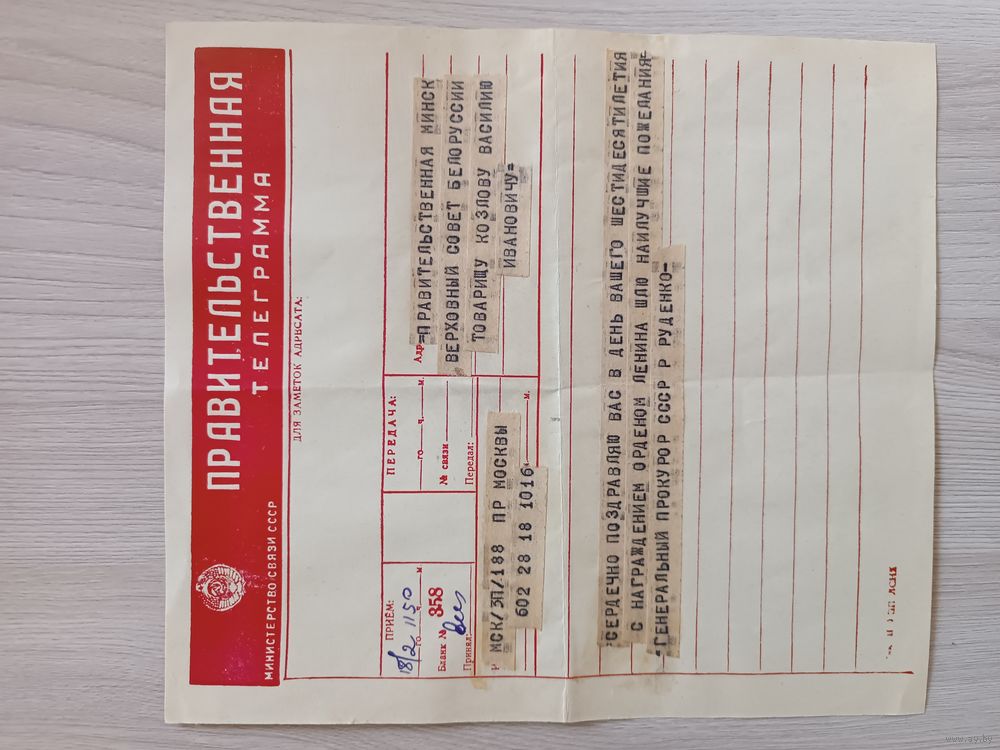 ПРАВИТЕЛЬСТВЕННАЯ
ТЕЛЕГРАММА
МИНИСТЕРСТВО СВЯЗИ СССР
ДЛЯ ЗАМЕТОК АДРЕСАТА:
ПРИЁМ:
18/2 го 1150 м
Бланк № 358
Принял:
ПЕРЕДАЧА:
го ч. м.
№ связи
Передал:
МСК/ЗП/188 ПР МОСКВЫ
602 28 18 1016
м.
Адр
=ПРАВИТЕЛЬСТВЕННАЯ МИНСК
ВЕРХОВНЫЙ СОВЕТ БЕЛОРУССИИ
ТОВАРИЩУ КОЗЛОВУ ВАСИЛИЮ
ИВАНОВИЧУ=
СЕРДЕЧНО ПОЗДРАВЛЯЮ ВАС В ДЕНЬ ВАШЕГО ШЕСТИДЕСЯТИЛЕТИЯ
С НАГРАЖДЕНИЕМ ОРДЕНОМ ЛЕНИНА ШЛЮ НАИЛУЧШИЕ ПОЖЕЛАНИЯ-
-ГЕНЕРАЛЬНЫЙ ПРОКУРОР СССР Р РУДЕНКО-
www.ay.by